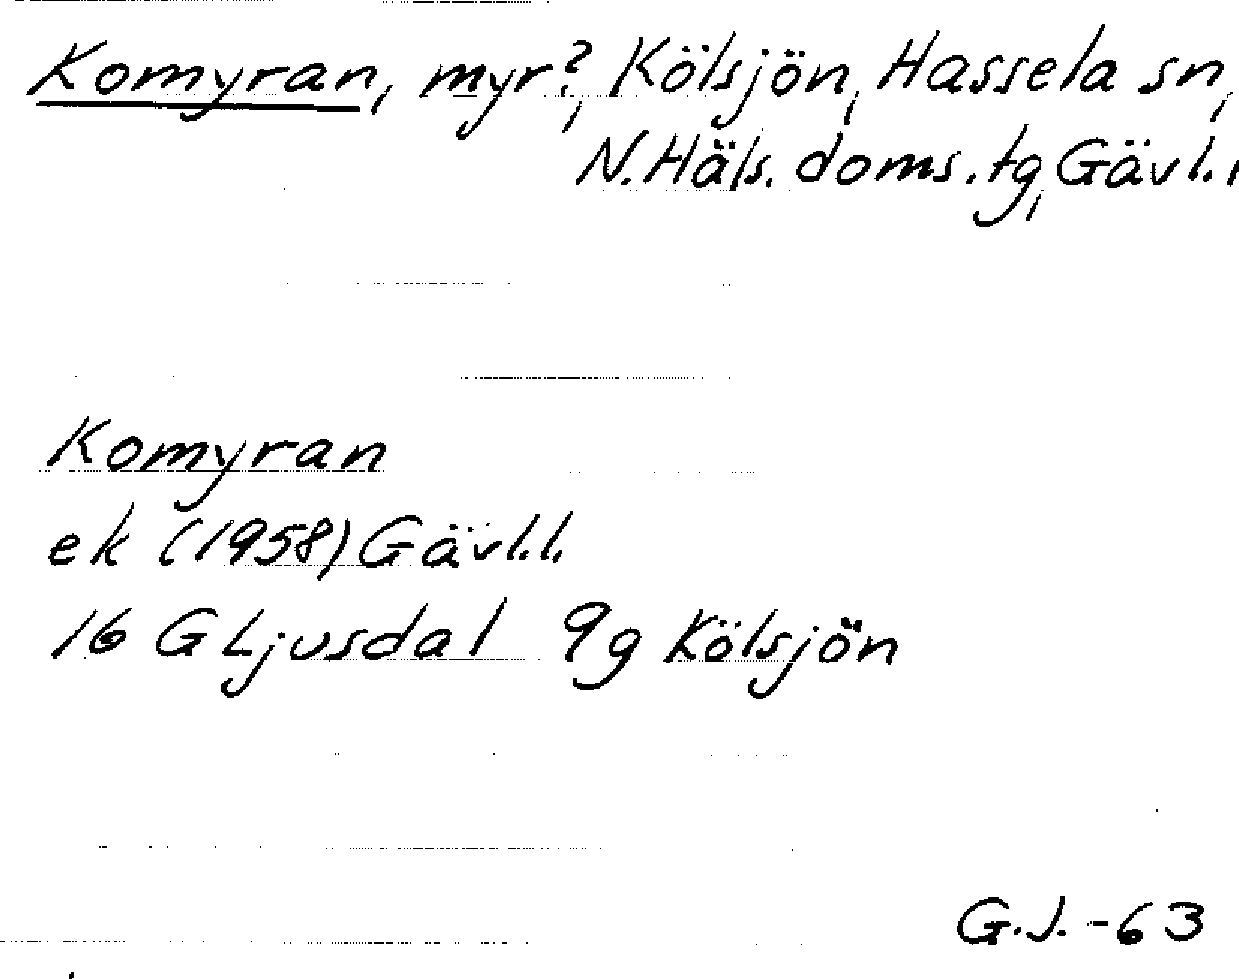 Komyran, myr?, Kölsjön, Hassela sn,
N. Häls. doms. tg, Gävl. l
Komyran
ek (1958) Gävl.l.
16 G Ljusdal 9g Kölsjön
G.J. -63